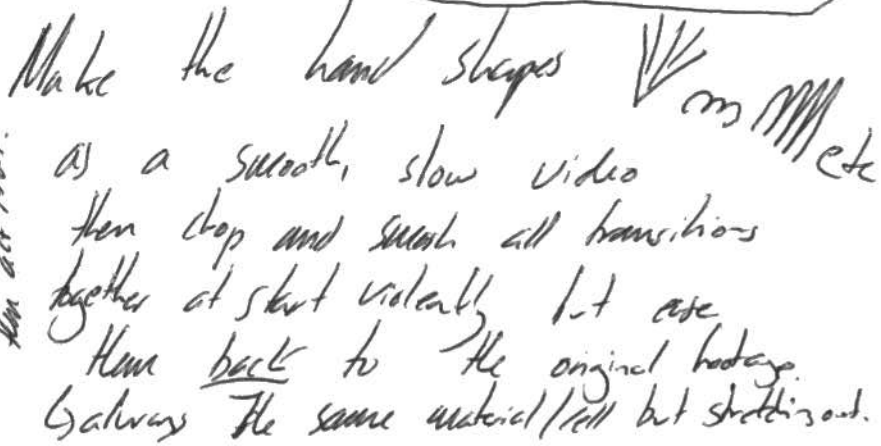 Make the hand shapes etc
as a smooth, slow video
then chop and smash all transitions
together at start violently but ease
them back to the original footage.
↳ always the same material/cell but stretching out.